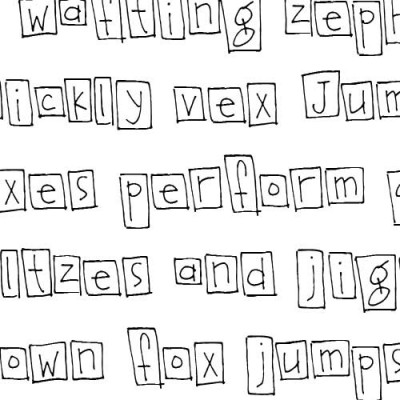 wafting zeph
ickly vex Jum
xes perform a
ltzes and jig
own fox jumps